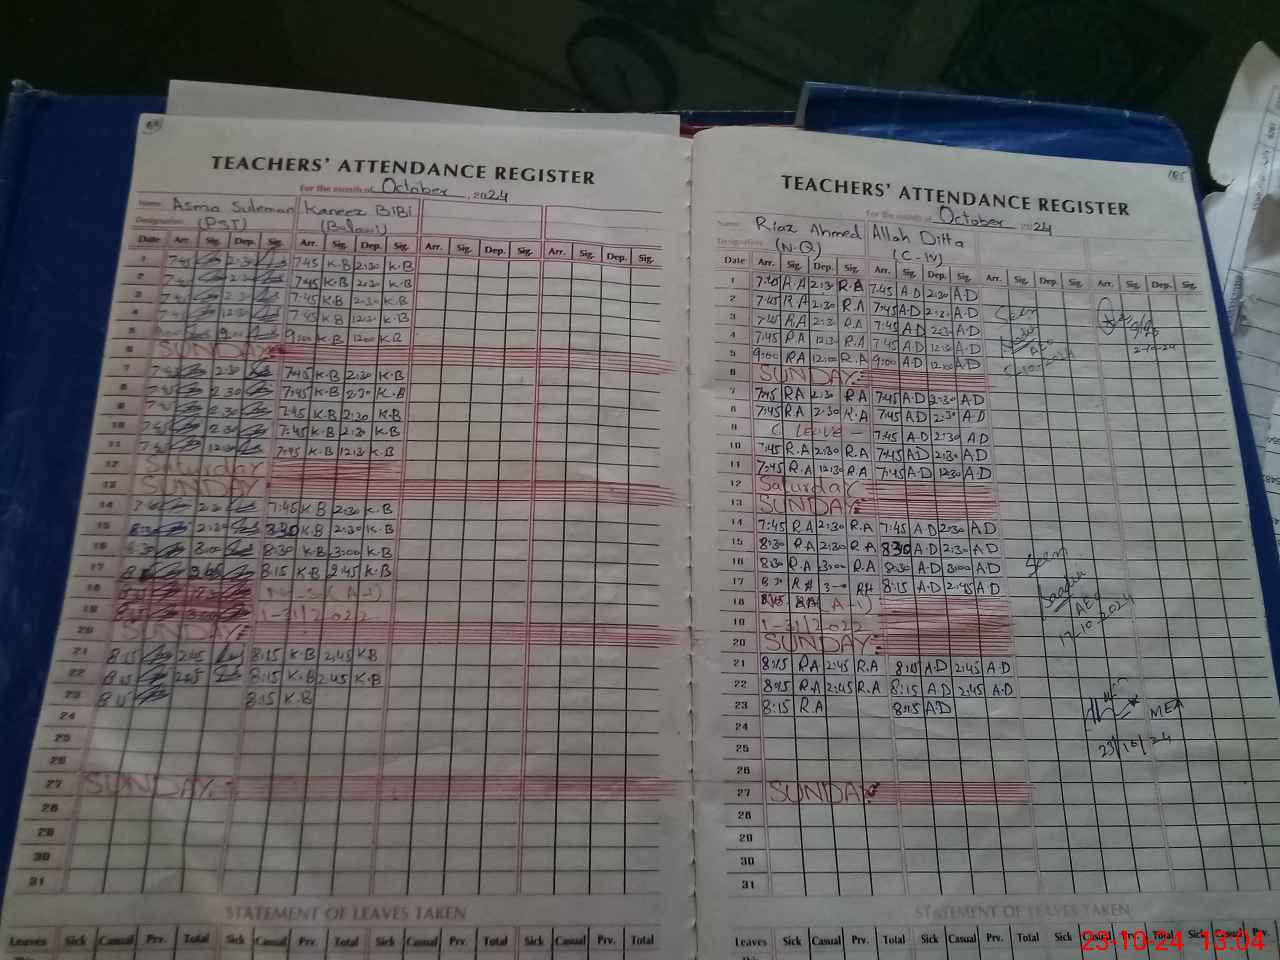 TEACHERS' ATTENDANCE REGISTER
For the month of October 2024
Name: Asma Suleman Kaneez BiBi
Designation: (PST)
Date Arr. Sig. Dep. Sig. Arr. Sig. Dep. Sig. Arr. Sig. Dep. Sig. Arr. Sig. Dep. Sig.
1 7:45 2:30 7:45 K.B 2:30 K.B
2 7:45 2:30 7:45 K.B 2:30 K.B
3 7:45 2:30 7:45 K.B 2:30 K.B
4 7:45 12:30 7:45 K.B 12:30 K.B
5 9:00 9:00 K.B 12:00 K.B
6 SUNDAY
7 7:45 2:30 7:45 K.B 2:30 K.B
8 7:45 2:30 7:45 K.B 2:30 K.B
9 7:45 2:30 7:45 K.B 2:30 K.B
10 7:45 2:30 7:45 K.B 2:30 K.B
11 7:45 12:30 7:45 K.B 12:30 K.B
12 Saturday
13 SUNDAY
14 7:45 2:30 7:45 K.B 2:30 K.B
15 8:30 2:30 8:30 K.B 2:30 K.B
16 8:30 3:00 8:30 K.B 3:00 K.B
17 8:15 2:45 8:15 K.B 2:45 K.B
18 (A-1)
19 1-31/2022
20 SUNDAY:
21 8:15 2:45 8:15 K.B 2:45 K.B
22 8:15 2:45 8:15 K.B 2:45 K.B
23 8:15 8:15 K.B
24
25
26
27 SUNDAY:
28
29
30
31
STATEMENT OF LEAVES TAKEN
Leaves Sick Casual Prv. Total Sick Casual Prv. Total Sick Casual Prv. Total Sick Casual Prv. Total
185
TEACHERS' ATTENDANCE REGISTER
For the month of October 2024
Name: Riaz Ahmed Allah Ditta
Designation: (N.Q) (C-IV)
Date Arr. Sig. Dep. Sig. Arr. Sig. Dep. Sig. Arr. Sig. Dep. Sig. Arr. Sig. Dep. Sig.
1 7:45 R.A 2:30 R.A 7:45 A.D 2:30 A.D
2 7:45 R.A 2:30 R.A 7:45 A.D 2:30 A.D Seen
3 7:45 R.A 2:30 R.A 7:45 A.D 2:30 A.D
4 7:45 R.A 12:30 R.A 7:45 A.D 12:30 A.D AEO 2-10-24
5 9:00 R.A 12:00 R.A 9:00 A.D 12:00 A.D
6 SUNDAY:
7 7:45 R.A 2:30 R.A 7:45 A.D 2:30 A.D
8 7:45 R.A 2:30 R.A 7:45 A.D 2:30 A.D
9 C Leave - 7:45 A.D 2:30 A.D
10 7:45 R.A 2:30 R.A 7:45 A.D 2:30 A.D
11 7:45 R.A 12:30 R.A 7:45 A.D 12:30 A.D
12 Saturday
13 SUNDAY:
14 7:45 R.A 2:30 R.A 7:45 A.D 2:30 A.D
15 8:30 R.A 2:30 R.A 8:30 A.D 2:30 A.D
16 8:30 R.A 3:00 R.A 8:30 A.D 3:00 A.D Seen
17 8:15 A.D 2:45 A.D
18 (A-1) AEO
19 1-31/2022 17-10-2024
20 SUNDAY:
21 8:15 R.A 2:45 R.A 8:15 A.D 2:45 A.D
22 8:15 R.A 2:45 R.A 8:15 A.D 2:45 A.D
23 8:15 R.A 8:15 A.D MEA
24 23/10/24
25
26
27 SUNDAY
28
29
30
31
STATEMENT OF LEAVES TAKEN
Leaves Sick Casual Prv. Total Sick Casual Prv. Total Sick Casual Prv. Total Sick Casual Prv. Total
23-10-24 13:04